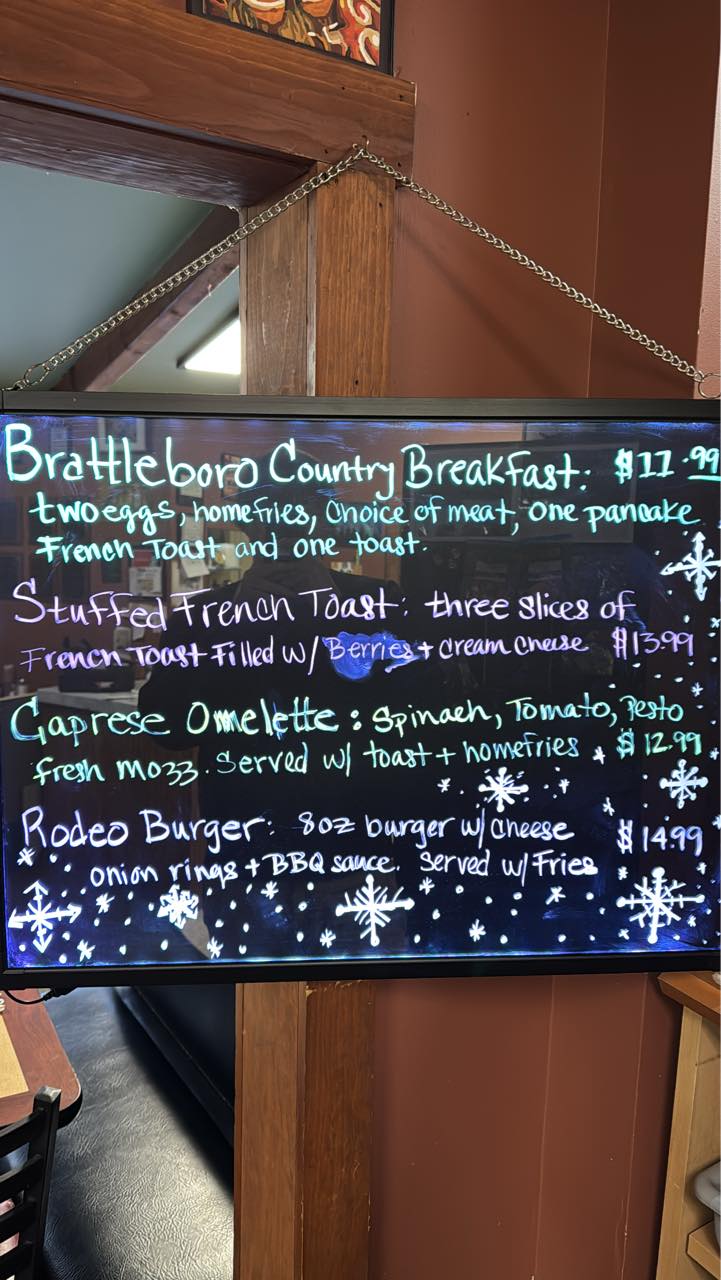 Brattleboro Country Breakfast: $11.99
two eggs, homefries, Choice of meat, one pancake
French Toast and one toast.
Stuffed French Toast: three slices of
French Toast Filled w/ Berries + cream cheese $13.99
Caprese Omelette: Spinach, Tomato, Pesto
fresh mozz. Served w/ toast + homefries $12.99
Rodeo Burger: 8oz burger w/ cheese $14.99
onion rings + BBQ sauce. Served w/ Fries